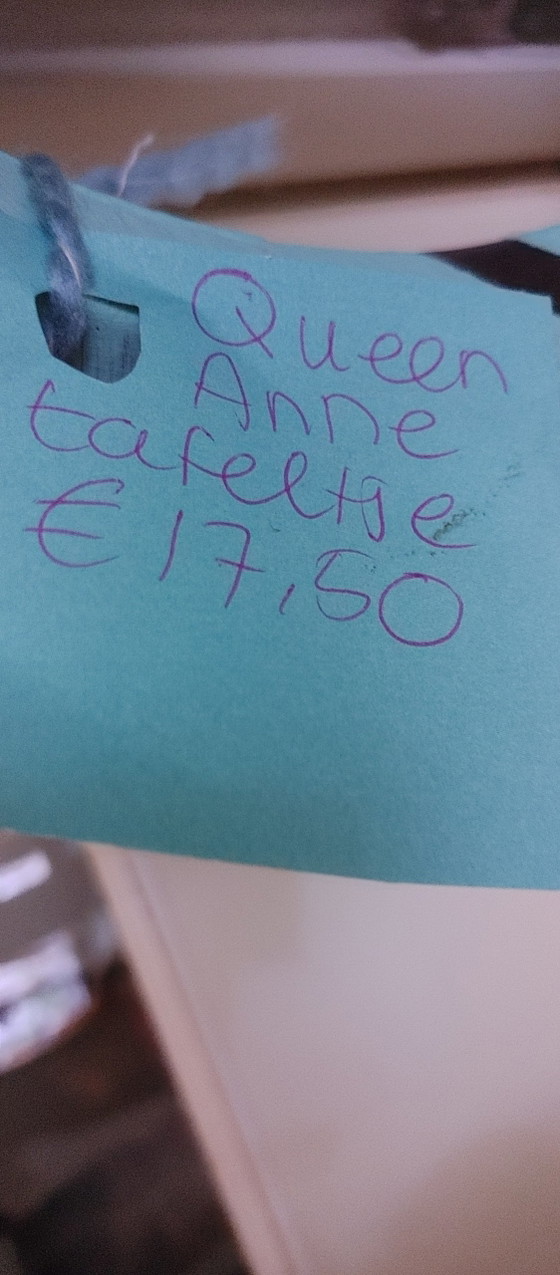 Queen
Anne
tafeltje
€ 17,50